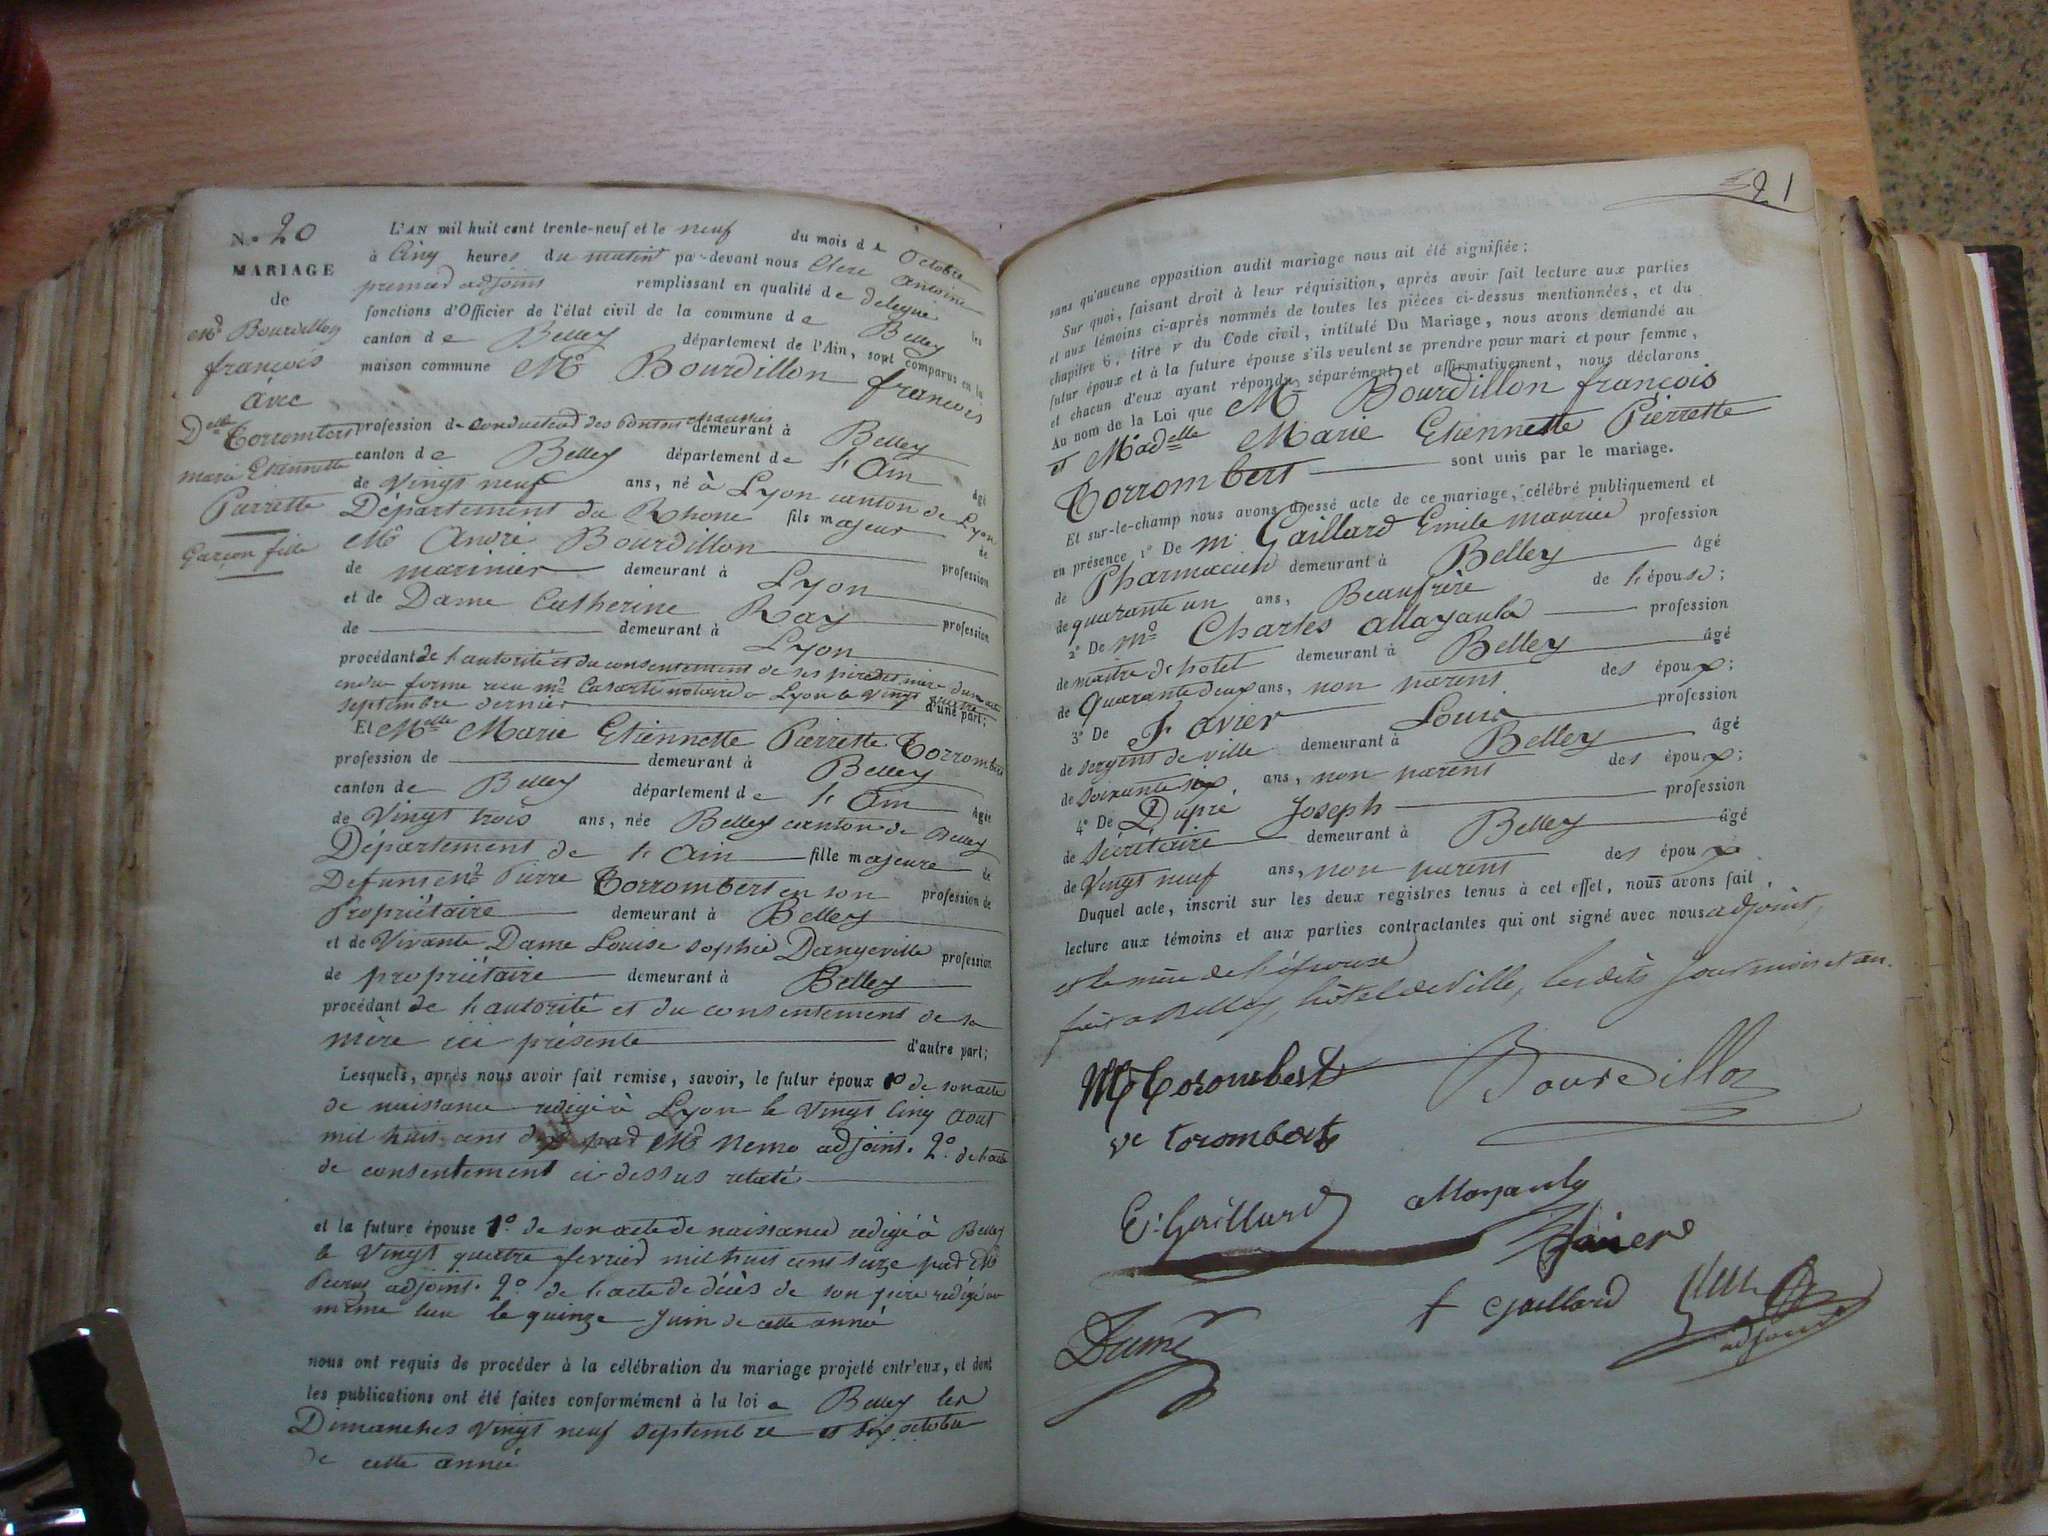 N.o 20
MARIAGE
de
Mr. Bourdillon
françois
avec
Delle Torrombert
marie Etiennette
Pierrette
Garçon fille
L'AN mil huit cent trente-neuf et le neuf du mois de Octobre
à Cinq heures du matin par-devant nous Clerc Antoine
premier adjoint remplissant en qualité de delegué les
fonctions d'Officier de l'état civil de la commune de Belley
canton de Belley département de l'Ain, sont comparus en la
maison commune Mr. Bourdillon françois
profession de conducteur des Ponts et chaussées demeurant à Belley
canton de Belley département de l'Ain âgé
de Vingt neuf ans, né à Lyon canton de Lyon
Département du Rhone fils majeur de
Mr. André Bourdillon profession
de marinier demeurant à Lyon
et de Dame Catherine Ray profession
de demeurant à Lyon
procédant de l'autorité et du consentement de ses père et mère
en due forme reçu Me. notaire à Lyon le Vingt quatre
septembre dernier d'une part;
Et Melle Marie Etiennette Pierrette Torrombert
profession de demeurant à Belley
canton de Belley département de l'Ain âgée
de Vingt trois ans, née Belley canton de Belley
Département de l'Ain fille majeure de
Defunt Mr. Pierre Torrombert en son profession de
Propriétaire demeurant à Belley
et de Vivante Dame Louise Sophie Dangeville profession
de propriétaire demeurant à Belley
procédant de l'autorité et du consentement de sa
mère ici présente d'autre part;
Lesquels, après nous avoir fait remise, savoir, le futur époux 1o de son acte
de naissance redigé à Lyon le Vingt Cinq Aout
mil huit cent dix par Mr. Nemo adjoint. 2o. de l'acte
de consentement ci-dessus relaté
et la future épouse 1o. de son acte de naissance redigé à Belley
le Vingt quatre fevrier mil huit cent seize par Mr.
adjoint. 2o. de l'acte de décès de son père redigé au
même lieu le quinze Juin de cette année
nous ont requis de procéder à la célébration du mariage projeté entr'eux, et dont
les publications ont été faites conformément à la loi a Belley les
Dimanches Vingt neuf septembre et six octobre
de cette année
21
sans qu'aucune opposition audit mariage nous ait été signifiée:
Sur quoi, faisant droit à leur réquisition, après avoir fait lecture aux parties
et aux témoins ci-après nommés de toutes les pièces ci-dessus mentionnées, et du
chapitre 6, titre v du Code civil, intitulé Du Mariage, nous avons demandé au
futur époux et à la future épouse s'ils veulent se prendre pour mari et pour femme,
et chacun d'eux ayant répondu séparément et affirmativement, nous déclarons
Au nom de la Loi que Mr. Bourdillon françois
et Madelle Marie Etiennette Pierrette
Torrombert sont unis par le mariage.
Et sur-le-champ nous avons dressé acte de ce mariage, célébré publiquement et
en présence 1o De Mr Gaillard Emile maurice profession
de Pharmacien demeurant à Belley âgé
de quarante un ans, Beaufrère de l'épouse;
2o De Mr. Charles allaganla profession
de maitre d'hotel demeurant à Belley âgé
de Quarante deux ans, non parent des époux;
3o De Favier Louis profession
de sergent de ville demeurant à Belley âgé
de soixante six ans, non parent des époux;
4o De Dupré Joseph profession
de Secrétaire demeurant à Belley âgé
de Vingt neuf ans, non parent des époux
Duquel acte, inscrit sur les deux registres tenus à cet effet, nous avons fait
lecture aux témoins et aux parties contractantes qui ont signé avec nous adjoint,
et la mère de l'épouse
fait a Belley, hôtel de Ville, les dits jour mois et an.
M Torombert Bourdillon
ve torombert
E. Gaillard
f Gaillard
adjoint